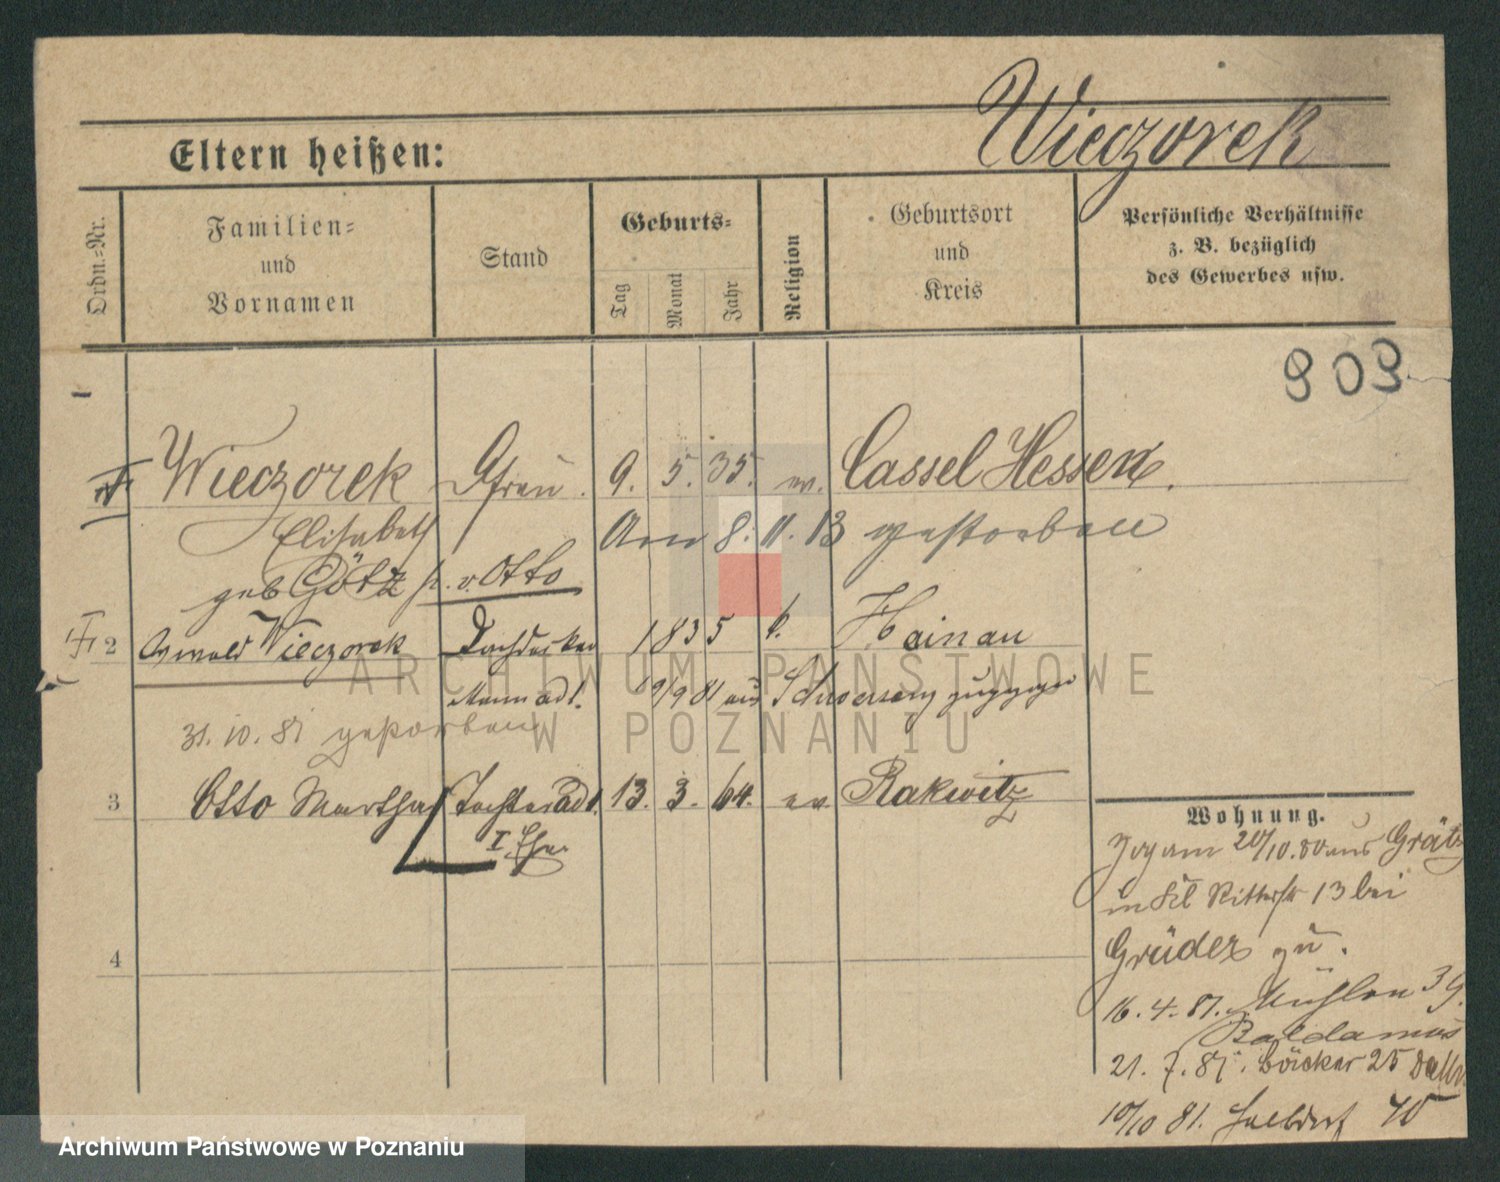 Wieczorek
Eltern heißen:
Ordn.-Nr.
Familien-
und
Vornamen
Stand
Geburts-
Tag
Monat
Jahr
Religion
Geburtsort
und
Kreis
Persönliche Verhältnisse
z. B. bezüglich
des Gewerbes usw.
909
Wieczorek Frau. 9. 5. 35. ev. Cassel Hessen.
Elisabeth Am 8. 11. 13 gestorben
geb Götz v. Otto
2 Oswald Wieczorek Dachdecker 1835 k. Hainau
Mann ad 1. 19/9 81 aus Schwersenz zugezogen
31. 10. 81 gestorben
3 Otto Martha Tochter ad 1. 13. 3. 64. ev Rakwitz
I Ehe.
4
Wohnung.
Zog am 20/10. 80 aus Grätz
in Ritterstr 13 bei
Grüder zu.
16. 4. 81. Mühlen 39.
Baldamus
21. 7. 81. Bäcker 25
10/10 81. Halbdorf 40
ARCHIWUM PAŃSTWOWE
W POZNANIU
Archiwum Państwowe w Poznaniu